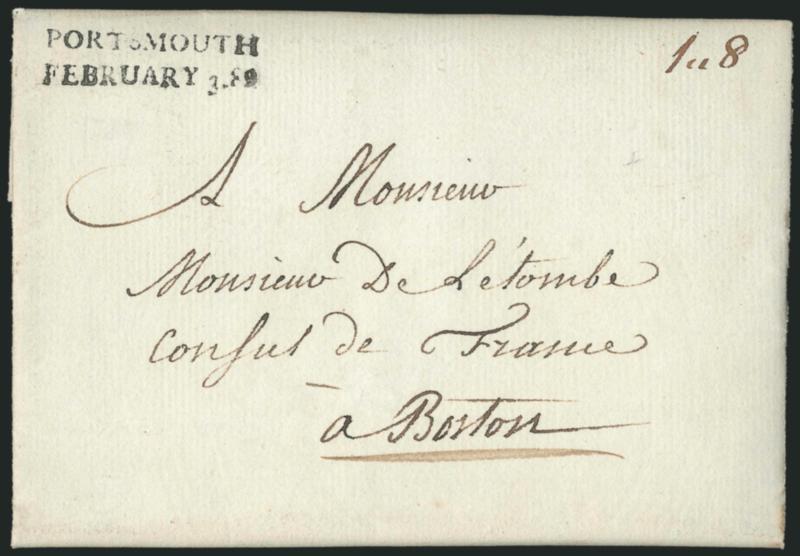 PORTSMOUTH
FEBRUARY 3.89
1 " 8
A Monsieur
Monsieur De Létombe
Consul de France
à Boston